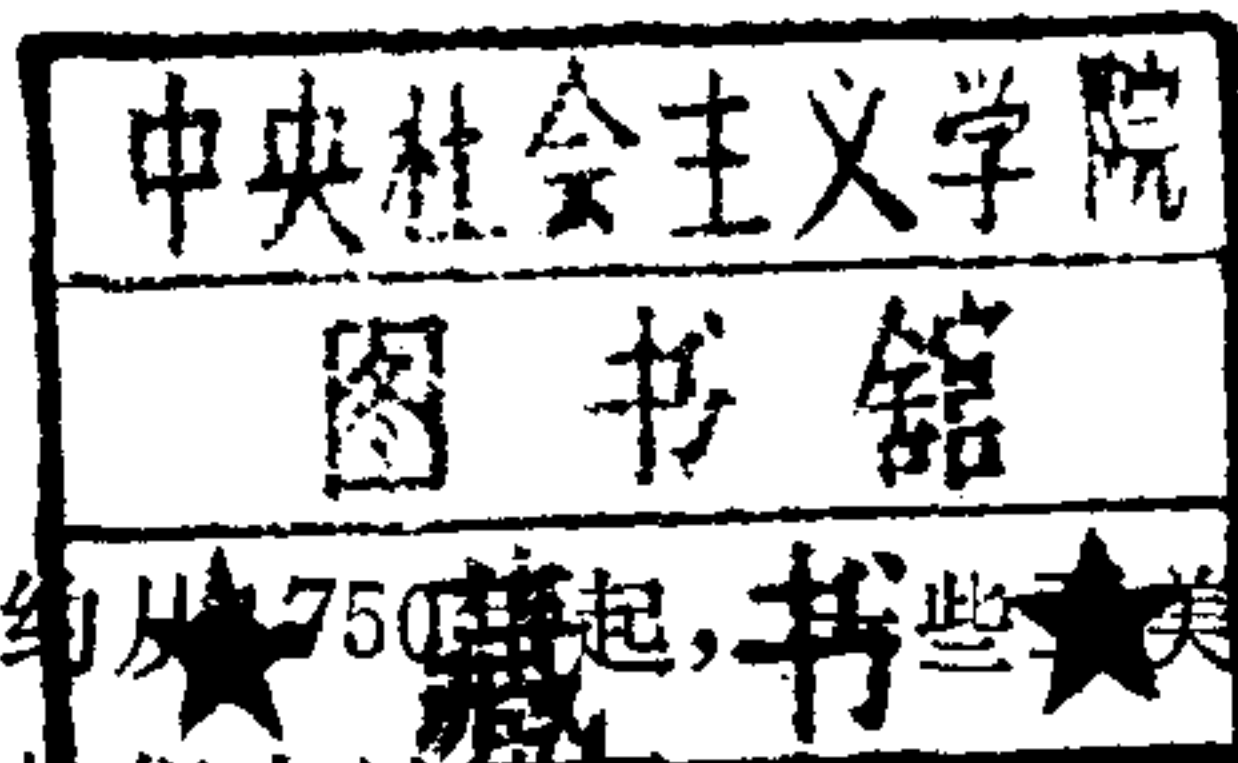 中央社会主义学院
图书馆
★藏书★
约从 750 起，些 美